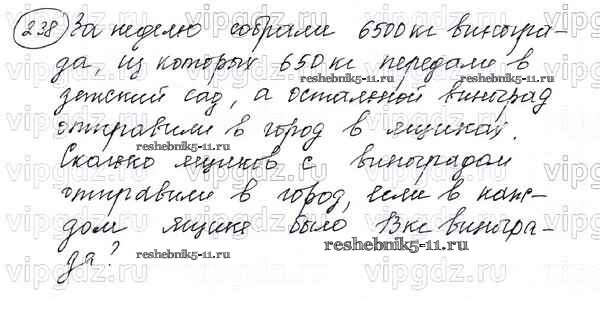 238) За неделю собрали 6500 кг виногра-
да, из которых 650 кг передали в
детский сад, а остальной виноград
отправили в город в ящиках.
Сколько ящиков с виноградом
отправили в город, если в каж-
дом ящике было 13 кг виногра-
да?
reshebnik5-11.ru
reshebnik5-11.ru
reshebnik5-11.ru
reshebnik5-11.ru
vipgdz.ru